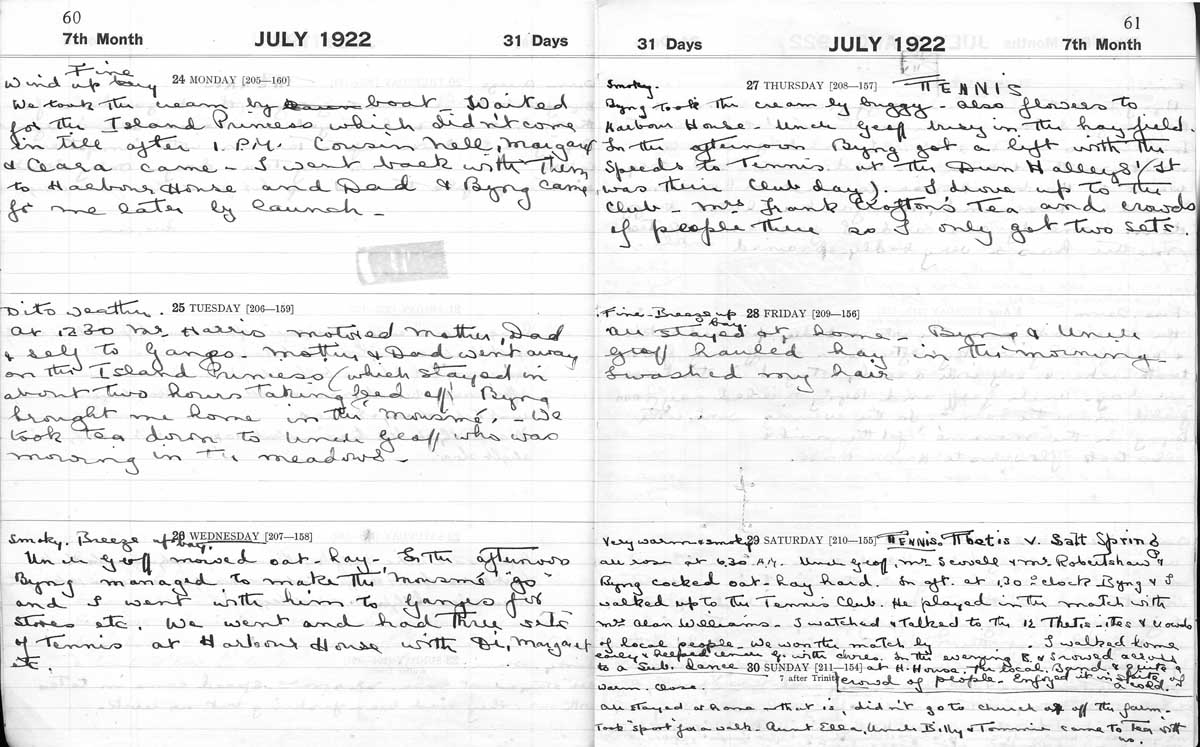 60
7th Month JULY 1922 31 Days
Fine
Wind up bay 24 MONDAY [205—160]
We took the cream by boat - Waited
for the Island Princess which didn't come
in till after 1. P.M. Cousin Nell, Margaret
& Ceara came - I went back with them
to Harbour House and Dad & Byng came
for me later by launch -
Dito weather. 25 TUESDAY [206—159]
at 1230 Mr Harris motored Mother, Dad
& self to Ganges - Mother & Dad went away
on the Island Princess (which stayed in
about two hours taking feed off) Byng
brought me home in the "Mousmé". - We
took tea down to Uncle Geoff who was
mowing in the meadows -
Smoky. Breeze up bay. 26 WEDNESDAY [207—158]
Uncle Geoff mowed oat-hay - In the afternoon
Byng managed to make the "Mousmé" "go"
and I went with him to Ganges for
stores etc. We went and had three sets
of Tennis at Harbour House with Di, Margaret
etc.
61
31 Days JULY 1922 7th Month
Smoky. 27 THURSDAY [208—157] TENNIS
Byng took the cream by buggy - also flowers to
Harbour House - Uncle Geoff busy in the hay field
In the afternoon Byng got a lift with the
Speeds to Tennis at the Dun Halleys' (it
was their Club day). I drove up to the
Club - Mrs Frank Crofton's Tea and crowds
of people there so I only got two sets.
Fine - Breeze up bay 28 FRIDAY [209—156]
all stayed at home - Byng & Uncle
Geoff hauled hay in the morning
I washed my hair
Very warm & smoky 29 SATURDAY [210—155] TENNIS. Thetis v. Salt Spring
all rose at 6.30 A.M. Uncle Geoff, Mr Sewell & Mr Robertshaw &
Byng cocked oat-hay hard. In aft. at 1.30 o'clock Byng & I
walked up to the Tennis Club. He played in the match with
Mrs Alan Williams - I watched & talked to the 12 Thetis-ites & crowds
of local people - We won the match by . I walked home
early & helped Uncle G. with chores. In the evening B. & I rowed across
to a Sub. dance 30 SUNDAY [211—154] at H. House - The local Band & quite a
7 after Trinity crowd of people - Enjoyed it in spite of
a cold.
Warm. Close.
all stayed at home - that is, didn't go to church or off the farm.
Took "Sport" for a walk - Aunt Ella, Uncle Billy & Tommie came to Tea with
us.